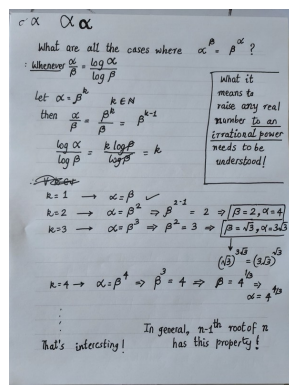 α α α
What are all the cases where α^β = β^α ?
: Whenever α/β = log α / log β
Let α = β^k    k ∈ N
then α/β = β^k/β = β^(k-1)
log α / log β = k log β / log β = k
What it
means to
raise any real
number to an
irrational power
needs to be
understood!
k=1 → α=β ✓
k=2 → α=β² ⇒ β^(2-1) = 2 ⇒ β=2, α=4
k=3 → α=β³ ⇒ β² = 3 ⇒ β=√3, α=3√3
(√3)^(3√3) = (3√3)^√3
k=4 → α=β⁴ ⇒ β³ = 4 ⇒ β = 4^(1/3) ⇒
α = 4^(4/3)
In general, n-1th root of n
has this property!
That's interesting!